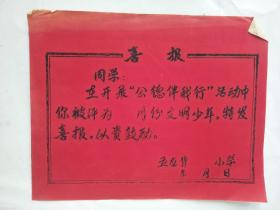 喜报
同学：
在开展“公德伴我行”活动中
你被评为 月份文明少年。特发
喜报。以资鼓励。
小学
年 月 日